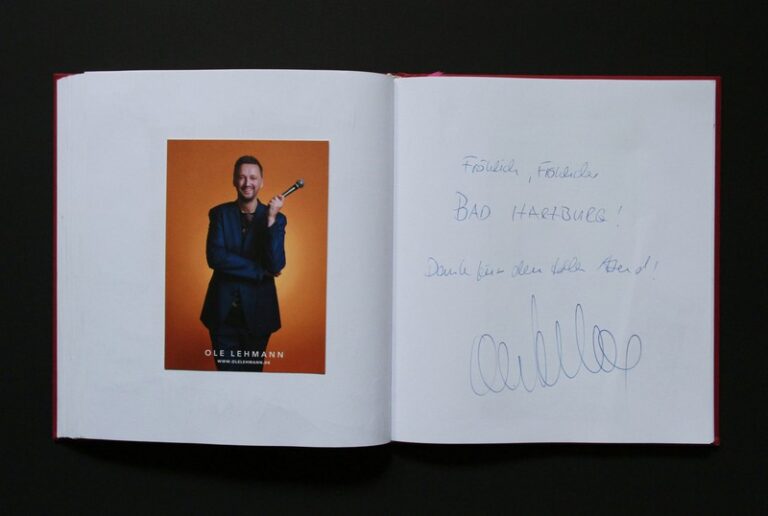 OLE LEHMANN
WWW.OLELEHMANN.DE
Fröhlich, Fröhlicher
BAD HARZBURG!
Danke für den tollen Abend!